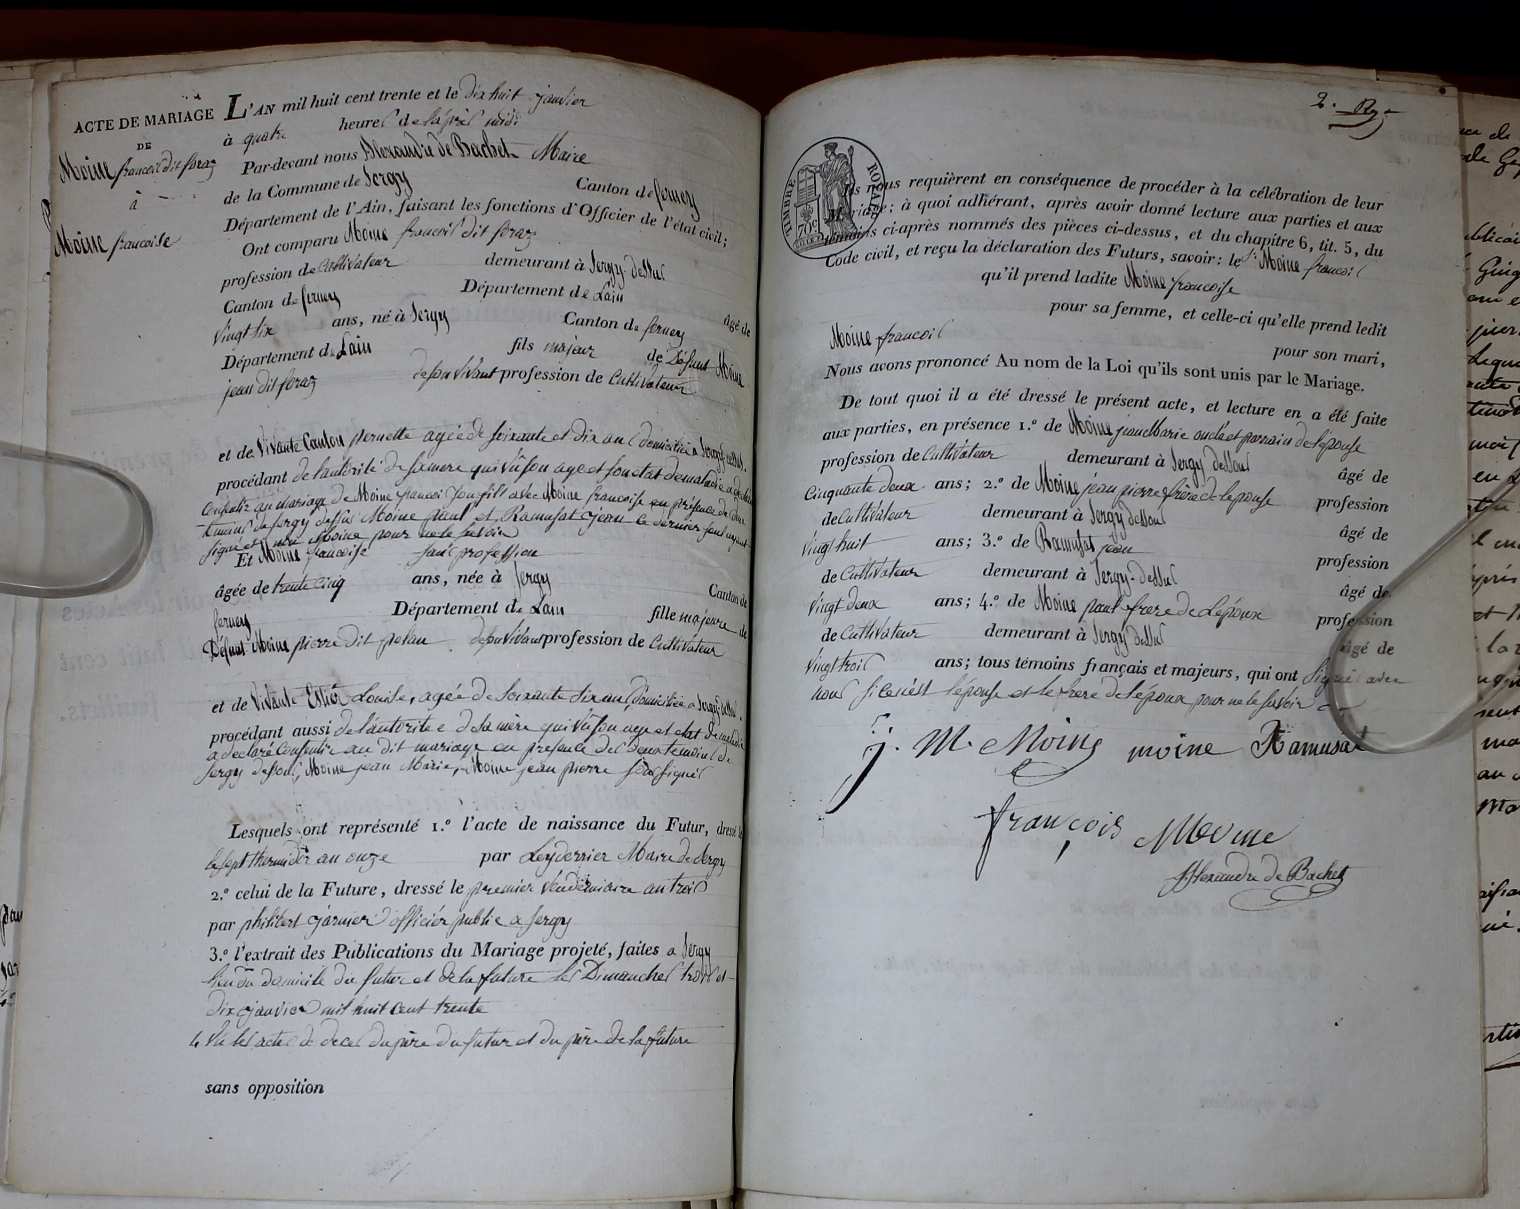 ACTE DE MARIAGE
DE
Moine francois dit foraz
à
Moine francoise
L'AN mil huit cent trente et le dix huit janvier
à quatre heures de laprès midi
Par-devant nous Alexandre de Bachet Maire
de la Commune de Sergy Canton de ferney
Département de l'Ain, faisant les fonctions d'Officier de l'état civil;
Ont comparu Moine francois dit foraz
profession de Cultivateur demeurant à Sergy-dessus
Canton de ferney Département de Lain âgé de
vingt six ans, né à Sergy Canton de ferney
Département de Lain fils majeur de Défunt Moine
jean dit foraz de son vivant profession de Cultivateur
et de Vivante Canton pernette agée de soixante et dix ans domiciliée a Sergy dessus.
procédant de lautorité de sa mere qui vû son age et son etat de maladie a déclaré
Consentir au mariage de Moine francois son fils avec Moine francoise en présence de deux
temoins de Sergy dessus Moine paul et Ramusat jean le dernier seul ayant
signé et non Moine pour ne le savoir
Et Moine francoise sans profession
âgée de trente cinq ans, née à Sergy Canton de
ferney Département de Lain fille majeure de
Défunt Moine pierre dit petau de son vivant profession de Cultivateur
et de Vivante Estier Louise, agée de soixante six ans, domiciliée a Sergy dessous.
procédant aussi de l'autorité de sa mère qui vû son age et etat de maladie
a déclaré Consentir au dit mariage en présence des deux temoins de
Sergy dessous, Moine jean Marie, Moine jean pierre soussignés
Lesquels ont représenté 1.º l'acte de naissance du Futur, dressé le
le sept thermidor an onze par Leyderrier Maire de Sergy
2.º celui de la Future, dressé le premier Vendémiaire an trois
par philibert officier public a Sergy
3.º l'extrait des Publications du Mariage projeté, faites a Sergy
lieu du domicile du futur et de la future les Dimanches trois et
dix janvier mil huit cent trente
4 Vu les actes de deces du père du futur et du père de la future
sans opposition
2.
TIMBRE ROYAL
70c
Ils nous requièrent en conséquence de procéder à la célébration de leur
Mariage; à quoi adhérant, après avoir donné lecture aux parties et aux
témoins ci-après nommés des pièces ci-dessus, et du chapitre 6, tit. 5, du
Code civil, et reçu la déclaration des Futurs, savoir: le Sr. Moine francois
qu'il prend ladite Moine francoise
pour sa femme, et celle-ci qu'elle prend ledit
Moine francois pour son mari,
Nous avons prononcé Au nom de la Loi qu'ils sont unis par le Mariage.
De tout quoi il a été dressé le présent acte, et lecture en a été faite
aux parties, en présence 1.º de Moine jean Marie oncle et parrain de lepouse
profession de Cultivateur demeurant à Sergy dessous âgé de
Cinquante deux ans; 2.º de Moine jean pierre frère de lepouse profession
de Cultivateur demeurant à Sergy dessous âgé de
Vingt huit ans; 3.º de Ramusat jean profession
de Cultivateur demeurant à Sergy-dessus âgé de
Vingt deux ans; 4.º de Moine paul frere de Lépoux profession
de Cultivateur demeurant à Sergy dessus âgé de
Vingt trois ans; tous témoins français et majeurs, qui ont signés avec
nous si ce n'est lépouse et le frere de lepoux pour ne le savoir
j. M. Moine moine Ramusat
françois Moine
Alexandre de Bachet